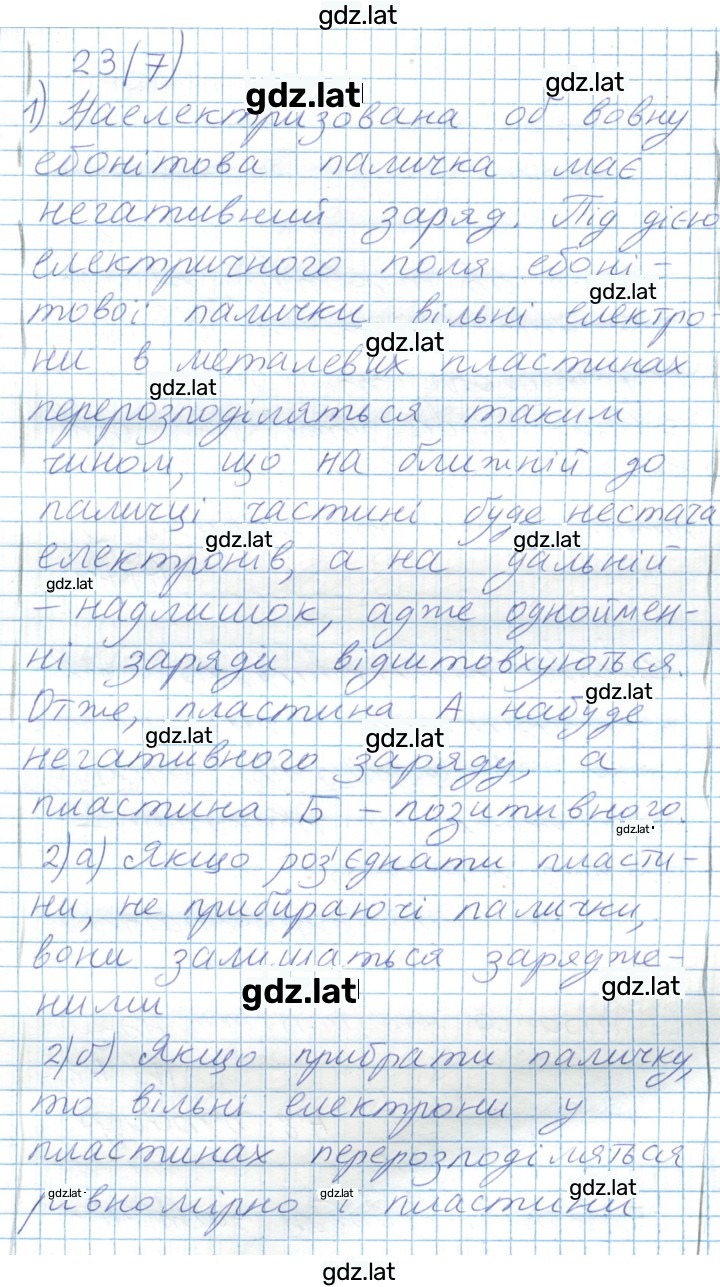 gdz.lat
23(7)
gdz.lat
gdz.lat
1) Наелектризована об вовну
ебонітова паличка має
негативний заряд. Під дією
електричного поля ебоні-
gdz.lat
тової палички вільні електро-
gdz.lat
ни в металевих пластинах
gdz.lat
перерозподіляться таким
чином, що на ближній до
паличці частині буде нестача
gdz.lat
gdz.lat
електронів, а на дальній
gdz.lat
- надлишок, адже одноймен-
ні заряди відштовхуються.
gdz.lat
Отже, пластина А набуде
gdz.lat
gdz.lat
негативного заряду, а
пластина Б - позитивного.
gdz.lat
2)а) Якщо роз'єднати пласти-
ни, не прибираючі палички,
вони залишаться зарядже-
gdz.lat
gdz.lat
ними
2)б) Якщо прибрати паличку,
то вільні електрони у
пластинах перерозподіляться
gdz.lat
gdz.lat
gdz.lat
рівномірно і пластини
gdz.lat